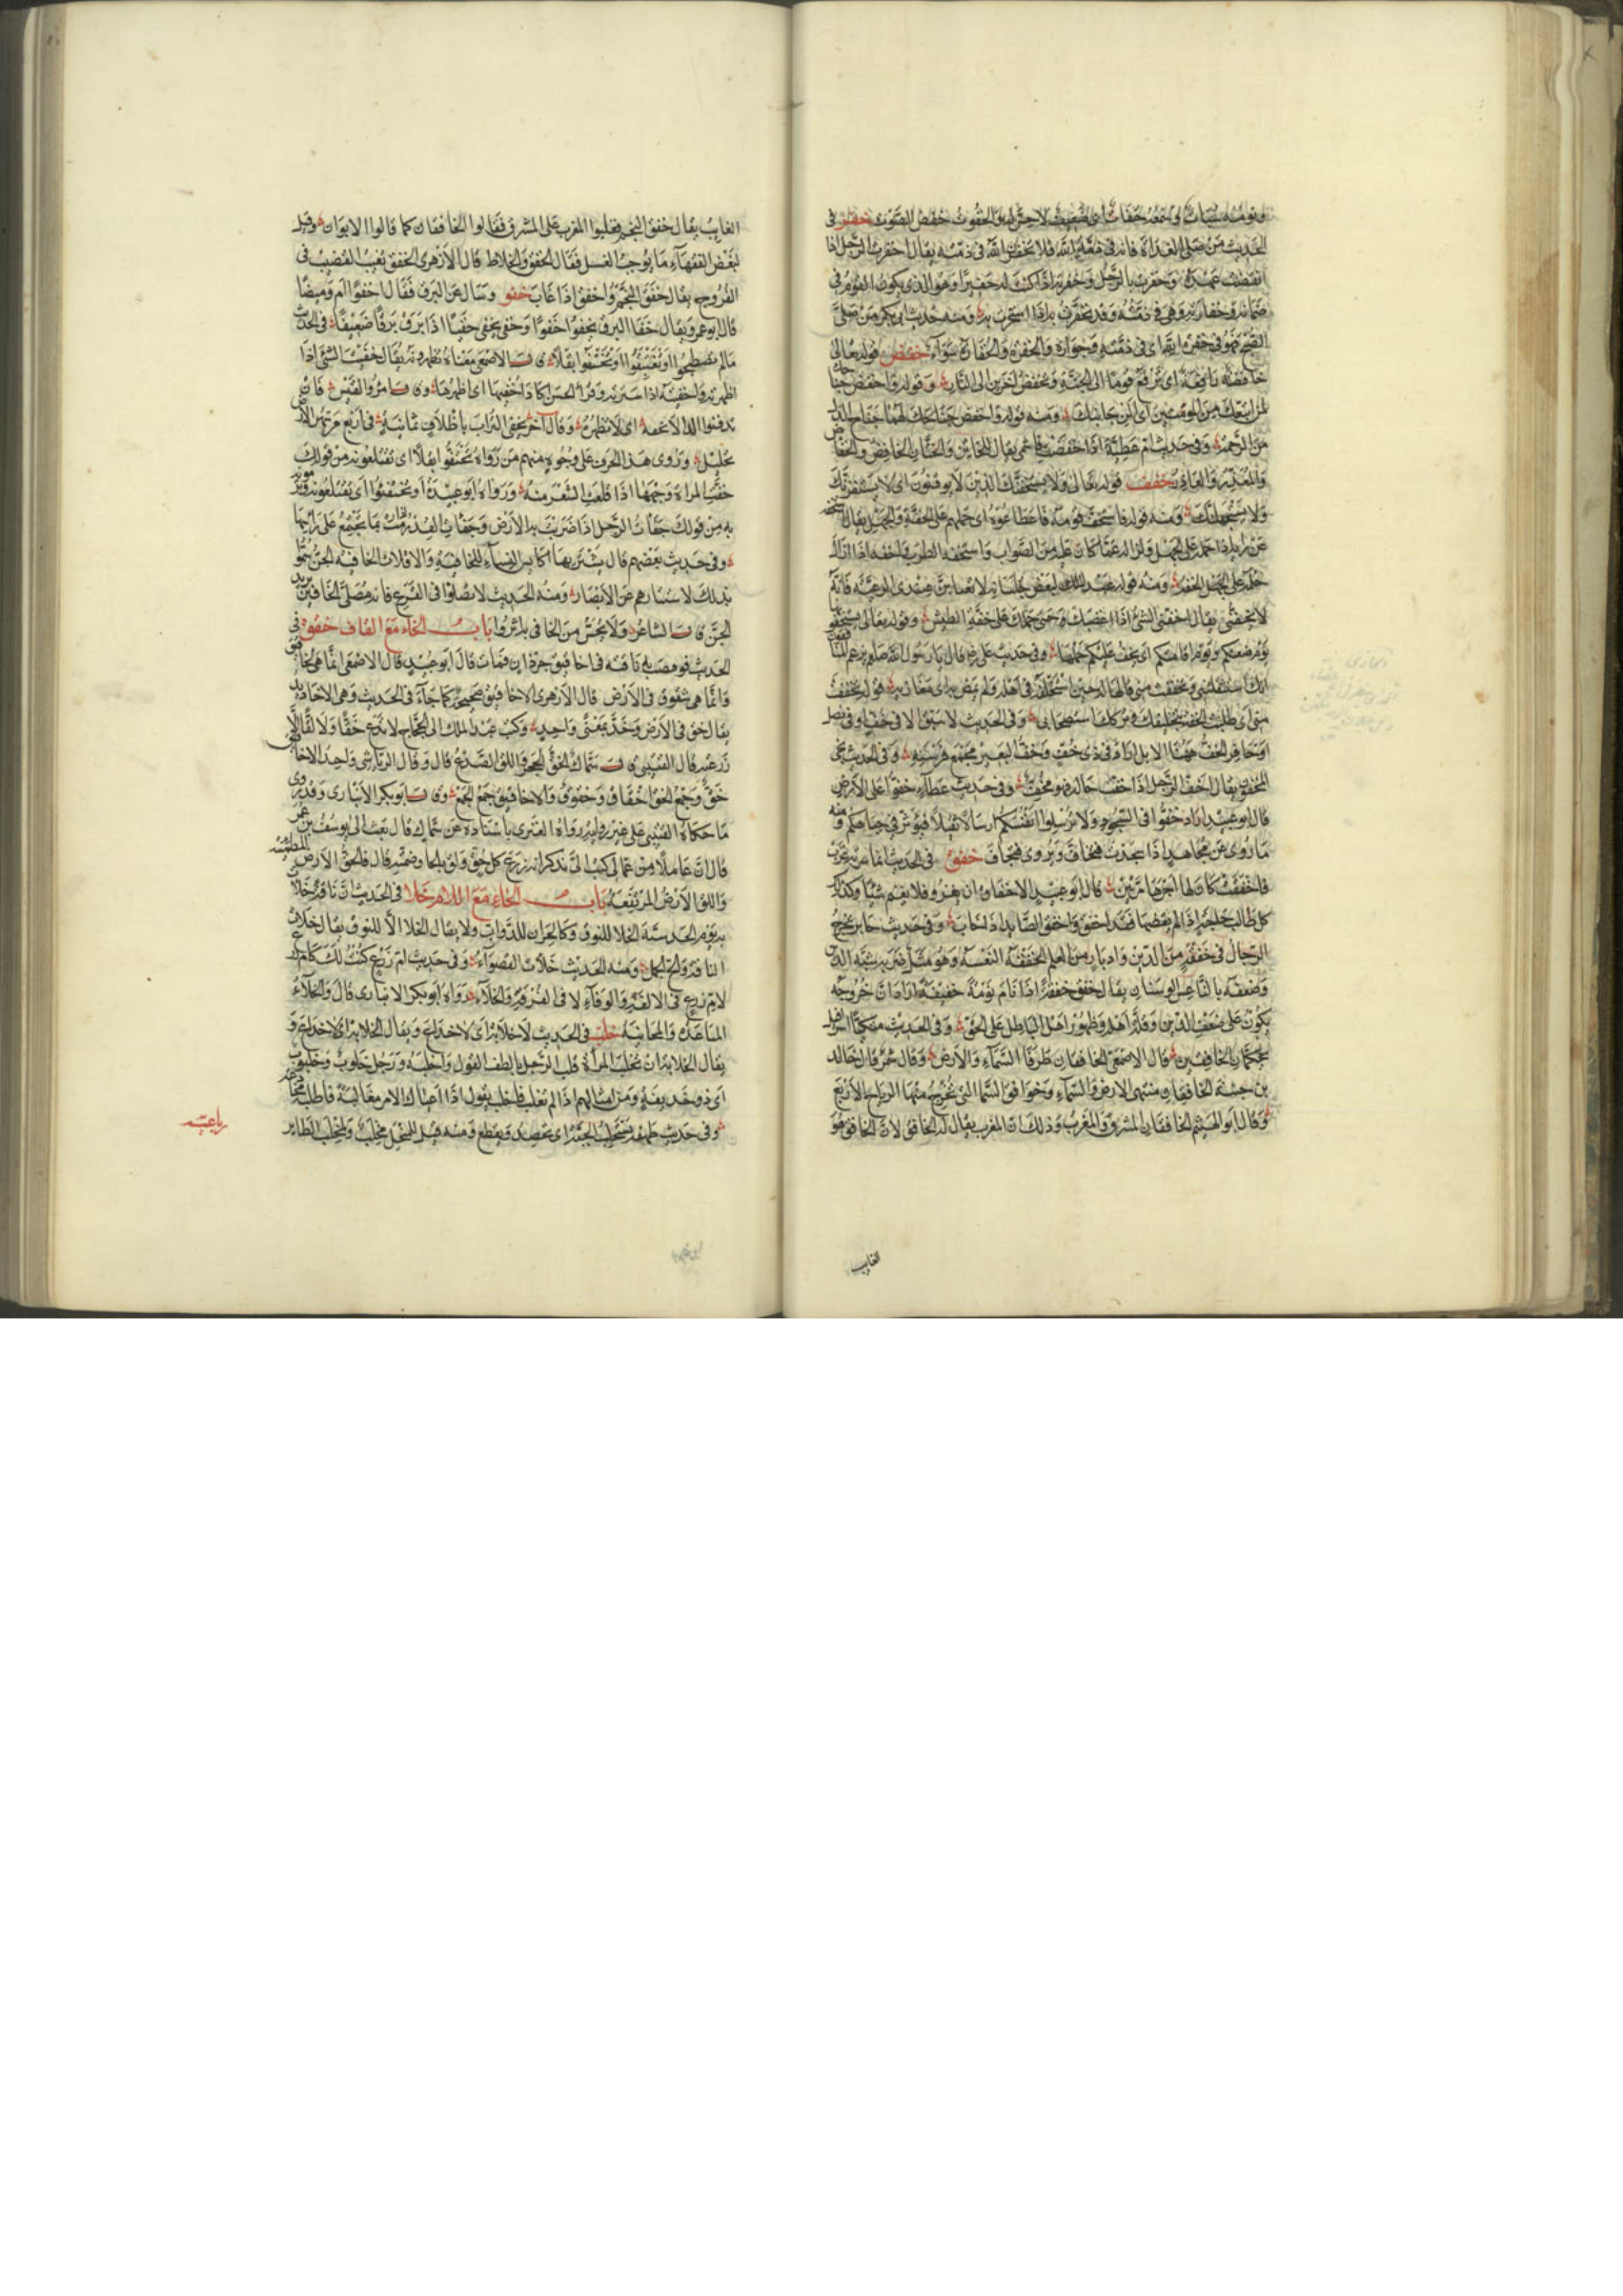 ونومه سبات وسمعه خفات أى ضعيف لا حس له والخفوت خفض الصوت خفر فى
الحديث من صلى الغداة فانه فى ذمة الله فلا تخفرن الله فى ذمته يقال اخفرت الرجل اذا
انقضت عهده وخفرت بالرجل وخفرته اذا كنت له خفيرا وهو الذى يكون القوم فى
ضمانه وخفارته وهى فى ذمته وقد تخفرت به اذا استجرت به ومنه حديث ابى بكر من صلى
الصبح فهو فى خفرة الله اى فى ذمته وجواره والخفرة والخفارة سواء خفض قوله تعالى
خافضة رافعة اى ترفع قوما الى الجنة وتخفض آخرين الى النار وقوله واخفض جناحك
لمن اتبعك من المؤمنين اى الن جانبك ومنه قوله واخفض لهما جناح الذل
من الرحمة وفى حديث ام عطية اذا خفضت فاشمى يقال للخاتن والختان الخافض والخفاض
والمعذر والعاذر خفف قوله تعالى ولا يستخفنك الذين لا يوقنون اى لا يستفزنك
ولا يستجهلنك ومنه قوله فاستخف قومه فاطاعوه اى حملهم على الخفة والجهل يقال استخفه
عن رايه اذا حمله على الجهل وازاله عما كان عليه من الصواب واستخفه الطرب واخفه اذا ازال
حلمه على الجهل الخفة ومنه قول عبد الملك لبعض جلسائه لا تغتابن عندى الرعية فانه
لا يخفنى يقال اخفنى الشئ اذا اغضبك حتى حملك على خفة الطيش وقوله تعالى تستخفونها
يوم ظعنكم ويوم اقامتكم اى يخف عليكم حملها وفى حديث على رض قال يا رسول الله صلعم يزعم المنافقون
انك استثقلتنى وتخففت منى قالها له حين استخلفه فى اهله ولم يمض به اى مغازيه قوله تخففت
منى اى طلبت الخفة بتخليفك وترك استصحابى وفى الحديث لا سبق الا فى خف او فى نصل
او حافر الخف ههنا الابل اراد فى ذى خف وخف البعير مجتمع فرسنه وفى الحديث نجى
المخفون يقال اخف الرجل اذا خفت حاله فهو مخف وفى حديث عطاء خففوا على الارض
قال ابو عبيد اراد خففوا فى السجود ولا ترسلوا انفسكم ارسالا ثقيلا فيؤثر فى جباهكم ومنه
ما روى عن مجاهد اذا سجدت فتخاف ويروى فتجاف خفق فى الحديث ايما سرية غزت
فاخفقت كان لها اجرها مرتين قال ابو عبيد الاخفاق ان يغزو فلا يغنم شيئا وكذلك
كل طالب حاجة اذا لم يقضها فقد اخفق واخفق الصائد اذا خاب وفى حديث جابر يخرج
الدجال فى خفقة من الدين وادبار من العلم الخفقة النعسة وهو مثل ضربه شبه الدين
وضعفه بالناعس الوسنان يقال خفق خفقة اذا نام نومة خفيفة اراد ان خروجه
يكون على ضعف الدين وقلة اهله وظهور اهل الباطل على الحق وفى الحديث منكبا اسرافيل
يحكان الخافقين قال الاصمعى الخافقان طرفا السماء والارض وقال شمر قال خالد
بن جنبة الخافقان منتهى الارض والسماء وخوافق السماء التى تخرج منها الرياح الاربع
وقال ابو الهيثم الخافقان المشرق والمغرب وذلك ان المغرب يقال له الخافق لان الخافق هو
الغايب
الغايب يقال خفق النجم فغلبوا المغرب على المشرق فقالوا الخافقان كما قالوا الابوان وقيل
لبعض الفقهاء ما يوجب الغسل فقال الخفق والخلاط قال الازهرى الخفق تغييب القضيب فى
الفروج يقال خفق النجم واخفق اذا غاب خفو وسال عن البرق فقال اخفوا ام وميضا
قال ابو عمرو يقال خفا البرق يخفو خفوا وخفى يخفى خفيا اذا برق برقا ضعيفا فى الحديث
ما لم تصطبحوا او تغتبقوا او تختفوا بقلا قال الاصمعى معناه تظهرونه يقال خفيت الشئ اذا
اظهرته واخفيته اذا سترته وقرأ الحسن اكاد اخفيها اى اظهرها وقال امرؤ القيس فان
تدفنوا الداء لا نخفه اى لا نظهره وقال آخر يخفى التراب باظلاف ثمانية فى اربع مسهن الارض
تحليل وروى هذا الحرف على وجوه منهم من رواه تحتفوا بقلا اى تقتلعونه من قولك
حفت المراة وجهها اذا قلعت الشعر منه ورواه ابو عبيدة او تحتفئوا اى تقتلعونه وترمون
به من قولك جفات الرجل اذا ضربت به الارض وجفات القدر رمت بما يجتمع على راسها
وفى حديث بعضهم قال يشتريها اكايس النساء للخافية والاقلات الخافية الجن سموا
بذلك لاستتارهم عن الابصار ومنه الحديث لا تصلوا فى القزع فانه مصلى الخافين يريد
الجن قال الشاعر ولا يحس من الخافى بها اثر باب الخاء مع القاف خقق فى
الحديث فوقصت به ناقته فى اخاقيق جرذان فمات قال ابو عبيد قال الاصمعى انما هى لخاقيق
وانما هى شقوق فى الارض قال الازهرى الاخاقيق صحيحة كما جاء فى الحديث وهى الاخاديد
يقال خق فى الارض وخد بمعنى واحد وكتب عبد الملك الى الحجاج لا تدع خقا ولا لقا الا
زرعته قال القتيبى قال سماك الخق الجحر واللق الصدع قال وقال الرياشى واحد الاخاقيق
خق وجمع الخق اخقاق وخقوق والاخاقيق جمع الجمع وقال ابو بكر الانبارى وقد روى
ما حكاه القتيبى على غير روايته رواه العنبرى باسناده عن سماك قال بعث الى يوسف بن عمر
قال ان عاملا من عمالى كتب الى يذكر انه زرع كل حق ولق بالحاء وضمه قال فالحق الارض المطمئنة
واللق الارض المرتفعة باب الخاء مع اللام خلا فى الحديث ان ناقته خلات
به يوم الحديبية الخلاء للنوق وكالحران للدواب ولا يقال الخلا الا للنوق يقال خلات
الناقة والح الجمل ومنه الحديث خلات القصواء وفى حديث ام زرع كنت لك كابى زرع
لام زرع فى الالفة والوفاء لا فى الفرقة والخلاء رواه ابو بكر الانبارى قال والخلاء
المباعدة والمجانبة خلب فى الحديث لا خلابة اى لا خداع ويقال الخلابة اى لا خداع و
يقال الخلابة ان تخلب المراة قلب الرجل بالطف القول واخلبه ورجل خلوب وخلبوت
اى ذو خديعة ومن امثالهم اذا لم تغلب فاخلب يقول اذا اعياك الامر مغالبة فاطلبه مخادعة
وفى حديث طهفة نستخلب الخبير اى نحصد ونقطع ومنه قيل للمنجل مخلب ولمخلب الطاير